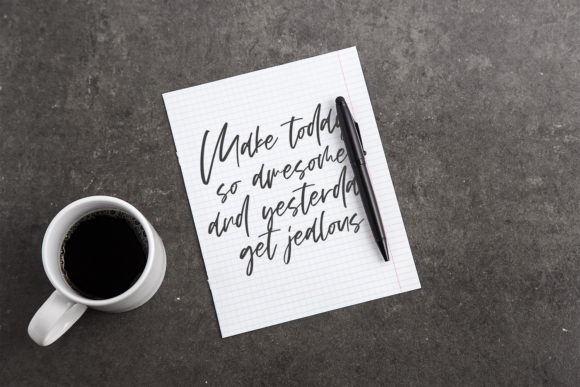 Make today
so awesome
and yesterday
get jealous